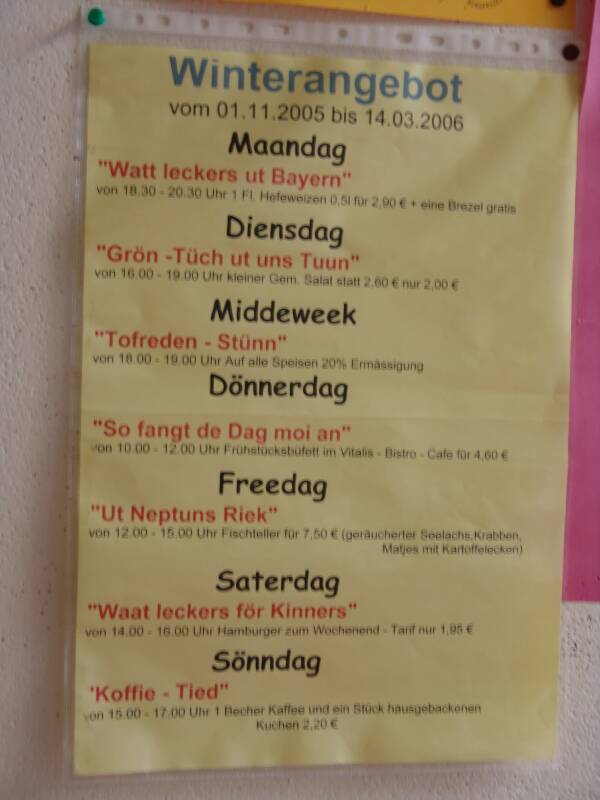 Winterangebot
vom 01.11.2005 bis 14.03.2006
Maandag
"Watt leckers ut Bayern"
von 18.30 - 20.30 Uhr 1 Fl. Hefeweizen 0,5l für 2,90 € + eine Brezel gratis
Diensdag
"Grön -Tüch ut uns Tuun"
von 16.00 - 19.00 Uhr kleiner Gem. Salat statt 2,60 € nur 2,00 €
Middeweek
"Tofreden - Stünn"
von 18.00 - 19.00 Uhr Auf alle Speisen 20% Ermässigung
Dönnerdag
"So fangt de Dag moi an"
von 10.00 - 12.00 Uhr Frühstücksbüfett im Vitalis - Bistro - Cafe für 4,60 €
Freedag
"Ut Neptuns Riek"
von 12.00 - 15.00 Uhr Fischteller für 7,50 € (geräucherter Seelachs,Krabben,
Matjes mit Kartoffelecken)
Saterdag
"Waat leckers för Kinners"
von 14.00 - 16.00 Uhr Hamburger zum Wochenend - Tarif nur 1,95 €
Sönndag
'Koffie - Tied"
von 15.00 - 17.00 Uhr 1 Becher Kaffee und ein Stück hausgebackenen
Kuchen 2,20 €